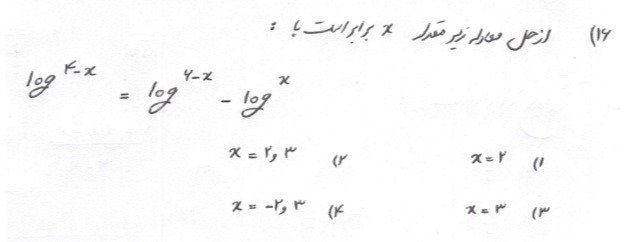 ۱۶) از حل معادله زیر مقدار x برابر است با :
log^{۴-x} = log^{۶-x} - log^{x}
۱) x = ۲  ۲) x = ۲ و ۳
۳) x = ۳  ۴) x = -۲ و ۳